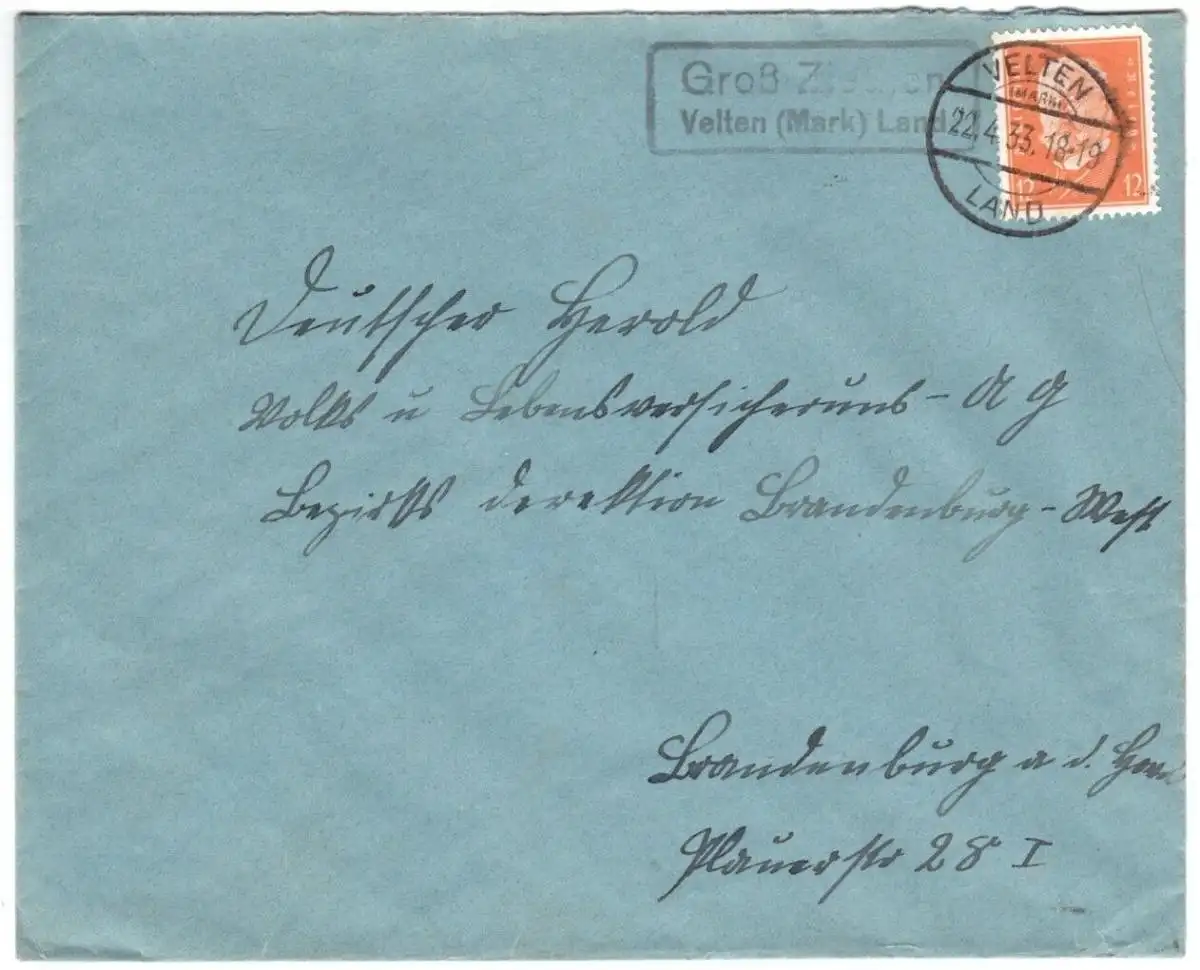 Groß Ziethen
Velten (Mark) Land
VELTEN
(MARK)
22.4.33.18-19
LAND
12 12
Deutscher Herold
Volks u Lebensversicheruns-AG
Bezirks derektion Brandenburg-West
Brandenburg a d.
Plauerstr 28 I